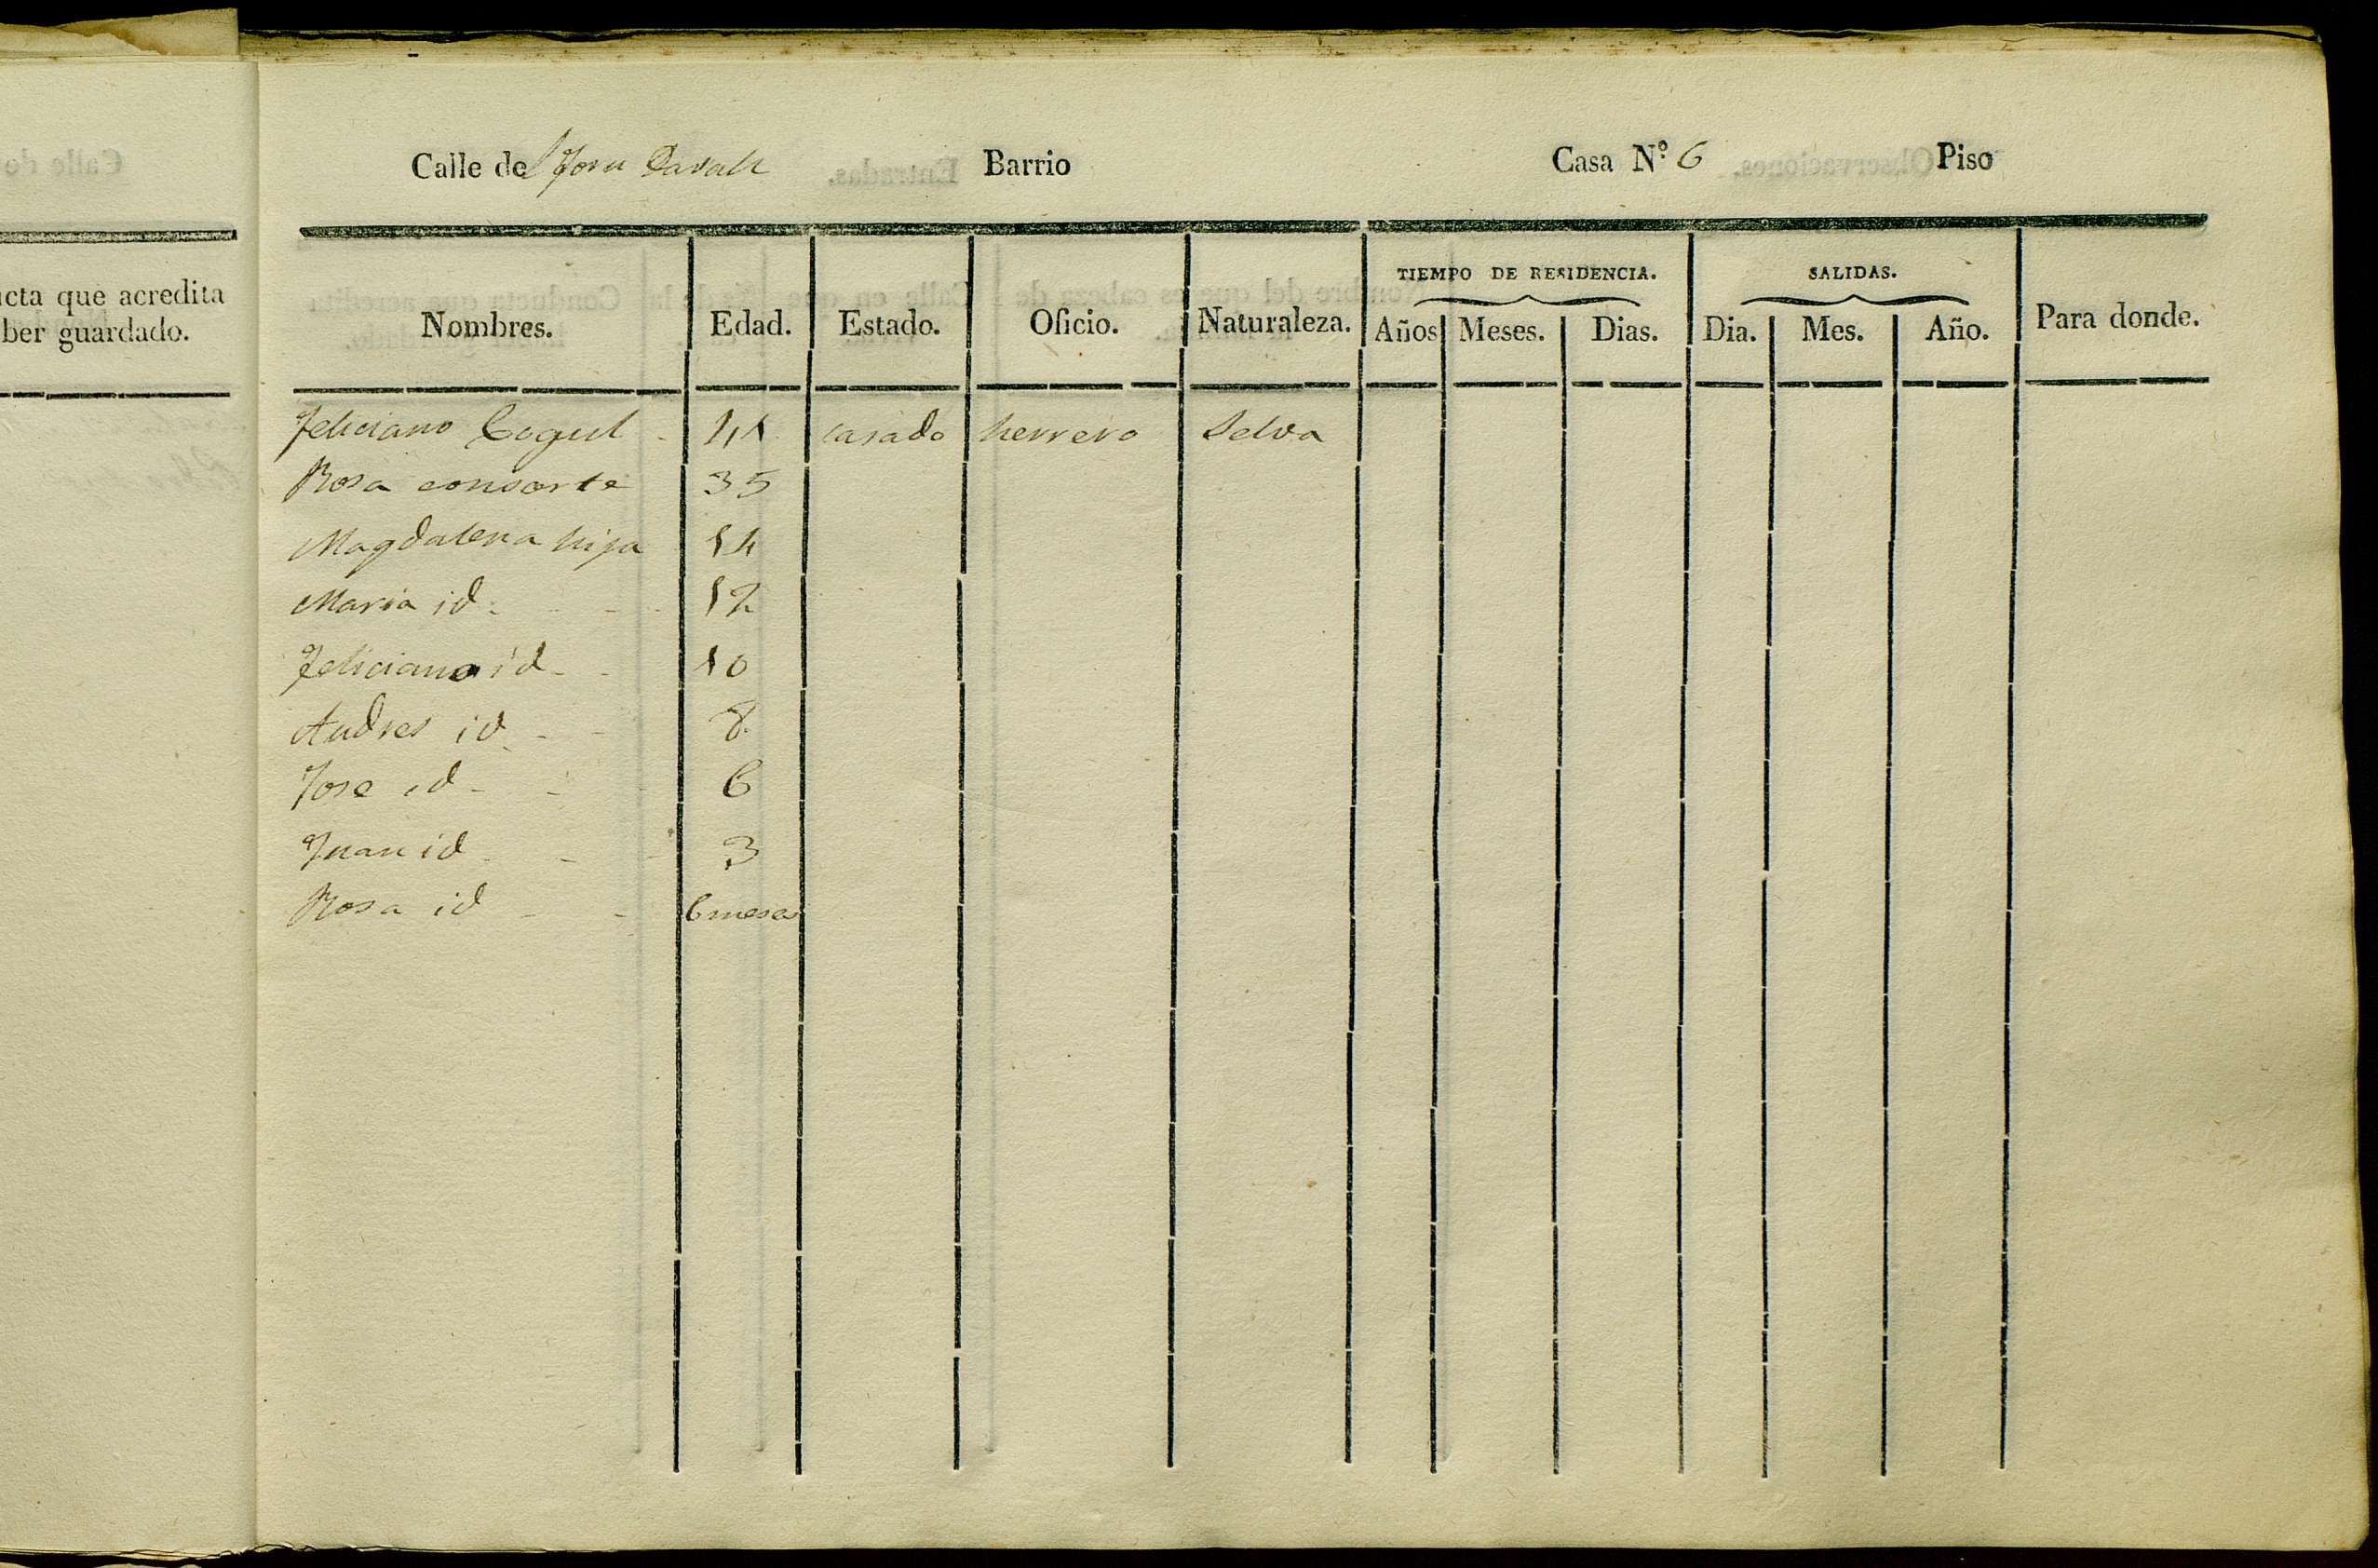 Calle de
Calle del Forn Davall Barrio Casa N.º 6 Piso
cta que acredita
ber guardado.
TIEMPO DE RESIDENCIA. SALIDAS.
Nombres. Edad. Estado. Oficio. Naturaleza. Años Meses. Dias. Dia. Mes. Año. Para donde.
Feliciano Cogul - casado herrero Selva
Rosa consorte 35
Magdalena hija 14
Maria id. - - 12
Feliciano id - - 10
Andres id - - 8
Jose id - - 6
Juan id - - 3
Rosa id - - 6 meses